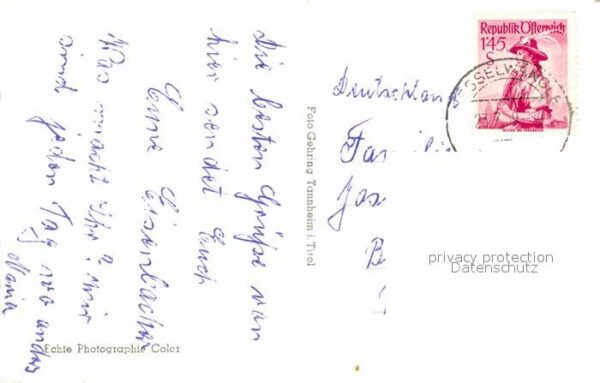 Die besten Grüße von
hier sendet Euch
Eure Eisenbacher
Was macht Ihr? wir
sind jeden Tag wo anders
Maria
Echte Photographie Color
Foto Gehring Tannheim i Tirol
Republik Österreich
1'45
S
Deutschland
Famili
Jos
B
privacy protection
Datenschutz